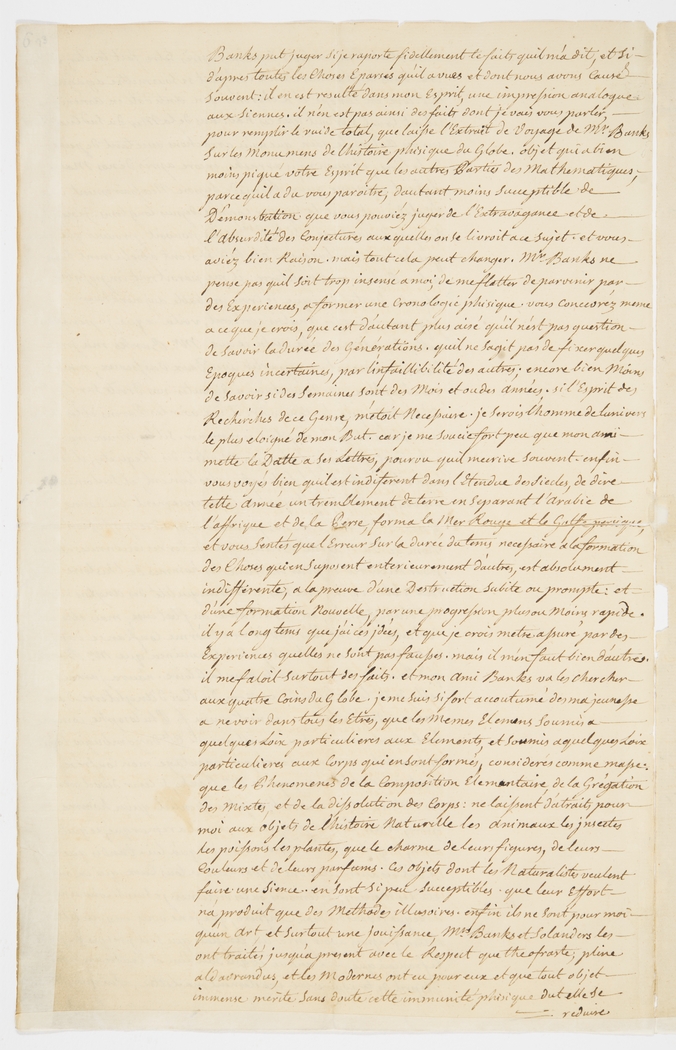 Banks put juger si je raporte fidellement te faits quil m'a dit, et si
d'apres toutes les Choses Eparses quil a vues et dont nous avons Causé
souvent: il en est resulté dans mon Esprit, une impression analogue
aux siennes. il n'en est pas ainsi des faits dont je vais vous parler,
pour remplir le vuide total, que laisse l'Extrait de Voyage de Mr. Banks
sur les Monumens de l'histoire phisique du Globe. objet qui a bien
moins piqué votre Esprit que les autres Parties des Mathematiques,
parce quil a du vous paroitre, dautant moins succeptible de
Démonstration que vous pouviez juger de l'Extravagance et de
l'absurdité des Conjectures aux quelles on se livroit a ce sujet. et vous
aviéz bien Raison. mais tout cela peut changer. Mr. Banks ne
pense pas quil soit trop insensé a moi, de me flatter de parvenir par
des Experiences, a former une Cronologie phisique. vous concevréz meme
a ce que je crois, que cest dautant plus aisé quil n'est pas question
de savoir la durée des Générations. quil ne sagit pas de fixer quelques
Epoques incertaines, par linfaillibilité des autres; encore bien Moins
de savoir si des Semaines sont des Mois et ou des années. si l'Esprit des
Recherches de ce Genre, métoit Necessaire. je serois lhomme de lunivers
le plus eloigné de mon But. car je me soucie fort peu que mon ami
mette la Datte a ses Lettres, pourvu quil mecrive souvent. enfin
vous voyés bien quil est indiferent dans l'Etendue des siecles, de dire
telle année un tremblement de terre en separant l'Arabie de
l'affrique et de la Perse, forma la Mer Rouge et le Golfe persique,
et vous sentés que l'Erreur sur la durée du tems necessaire a la formation
des Choses qui en suposent enterieurement d'autres, est absolument
indifférente, a la preuve d'une Destruction subite ou prompte: et
d'une formation Nouvelle, par une progression plus ou Moins rapide.
il y a longtems que j'ai ces idées, et que je crois mêtre assuré par des
Experiences quelles ne sont pas fausses. mais il m'en faut bien d'autres.
il me faloit surtout des faits. et mon ami Banks va les chercher
aux quatre Coins du Globe. je me suis si fort accoutumé des ma jeunesse
a ne voir dans tous les Etres, que les Memes Elemens soumis a
quelques Loix particulieres aux Elements, et soumis a quelques Loix
particulieres aux Corps qui en sont formés, considerés comme masse:
que les Phenomenes de la Composition Elementaire de la Grégation
des Mixtes, et de la dissolution des Corps: ne laissent dátraits pour
moi aux objets de l'histoire Naturelle les animaux les insectes
les poissons les plantes, que le charme de leurs figures, de leurs
Couleurs et de leurs parfums. Ces objets dont les Naturalistes veulent
faire une sience. en sont si peu succeptibles. que leur Effort
n'a produit que des Methodes illusoires. enfin ils ne sont pour moi
quun Art et surtout une jouissance, Mrs. Banks et Solanders les
ont traités jusqu'a present avec le Respect que theofraste; pline
aldavrandus, et les Modernes ont eu pour eux et que tout objet
immense merite sans doute cette immunité phisique dut elle se
reduire